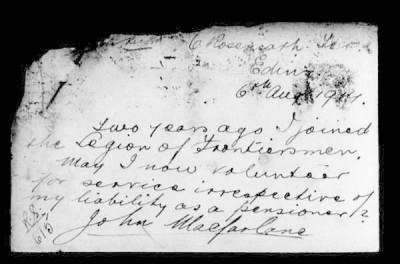 6 Roseneath Ter
Edinr
6th Aug 1914.
Two years ago I joined
the Legion of Frontiersmen.
May I now volunteer
for service irrespective of
my liability as a pensioner?
John Macfarlane